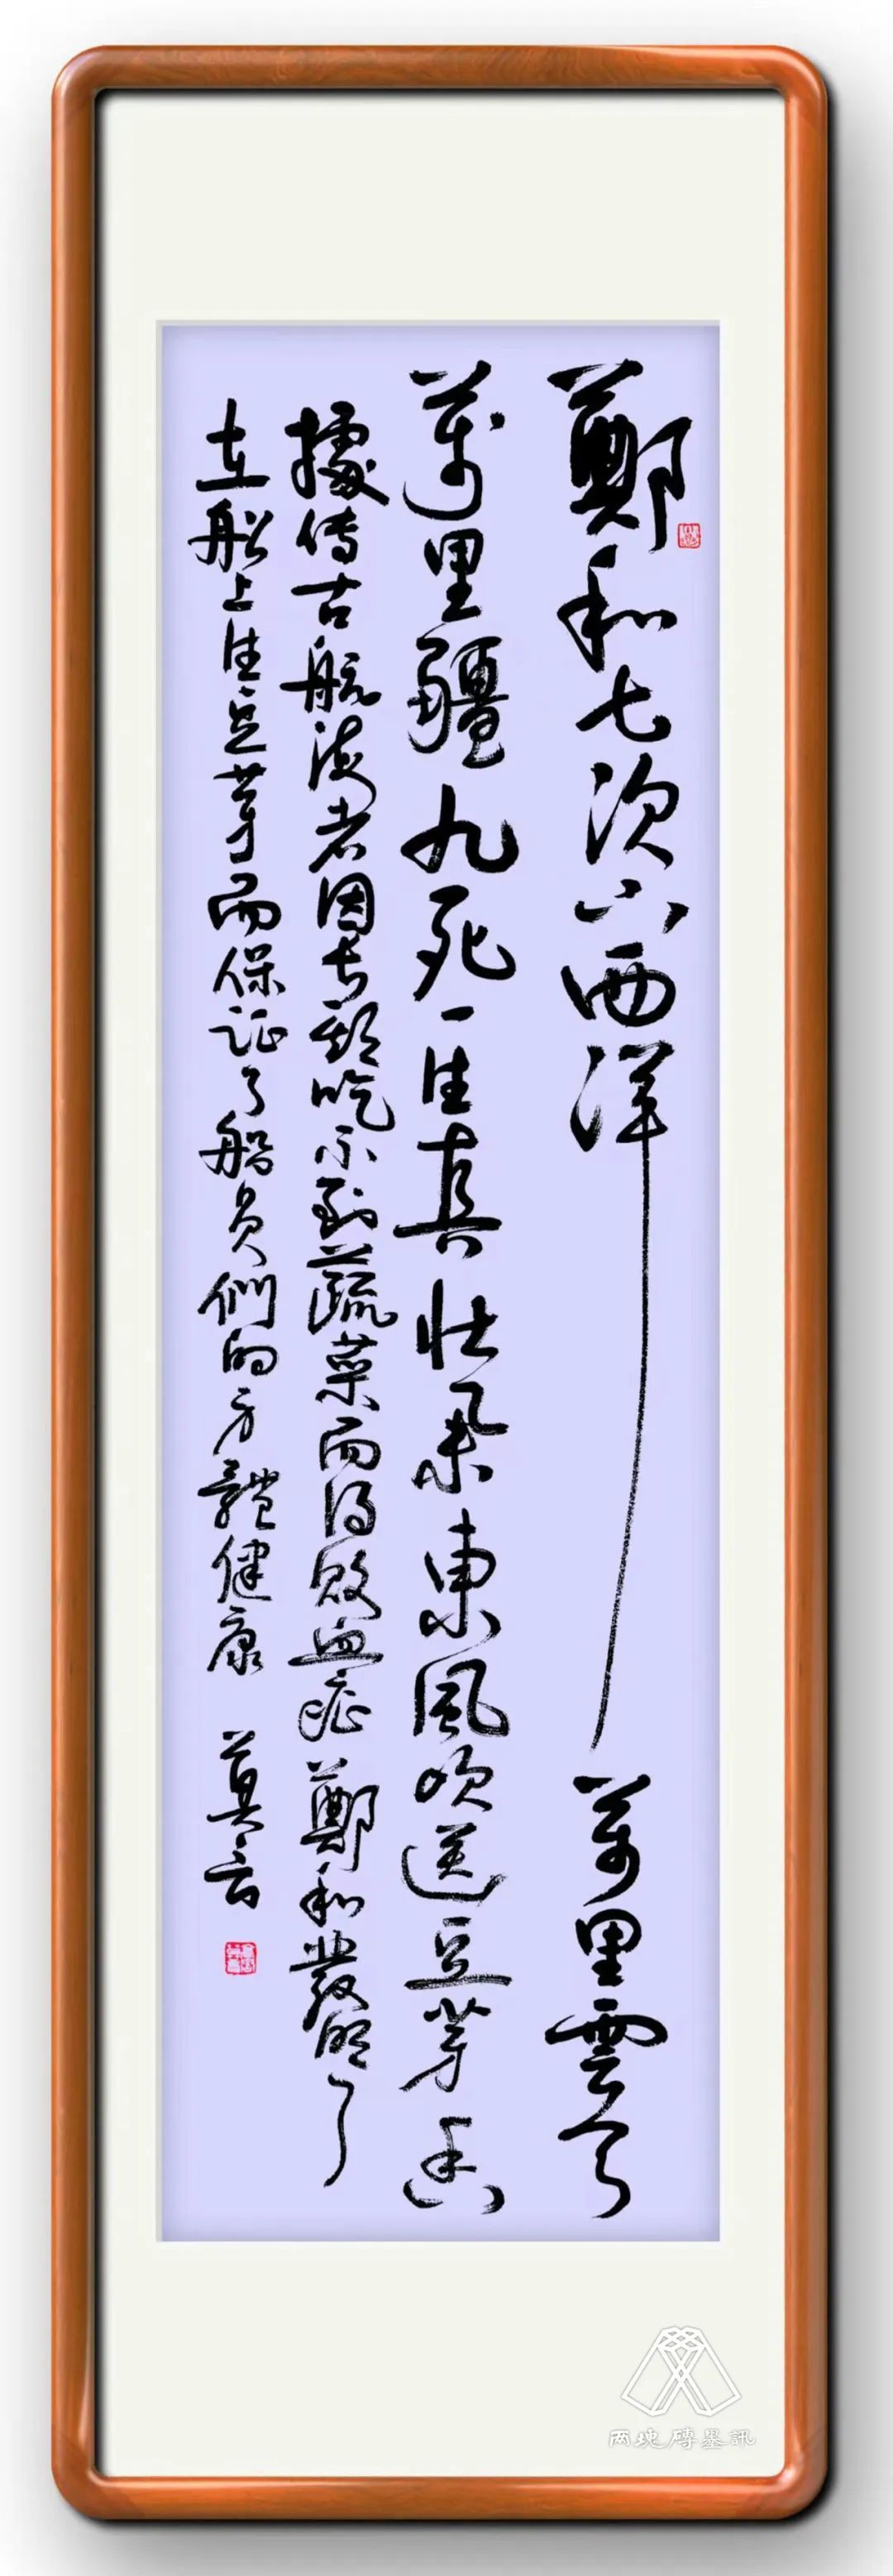 鄭和七次下西洋萬里雲兮
萬里疆九死一生真壯舉東風吹送豆芽香
據传古航海者因长期吃不到蔬菜而得败血症鄭和發明了
在船上生豆芽而保证了船员們的身體健康 莫言
两塊磚墨訊